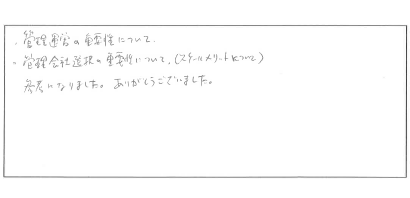 ・管理運営の重要性について.
・管理会社選択の重要性について,(スケールメリットについて)
参考になりました。ありがとうございました。